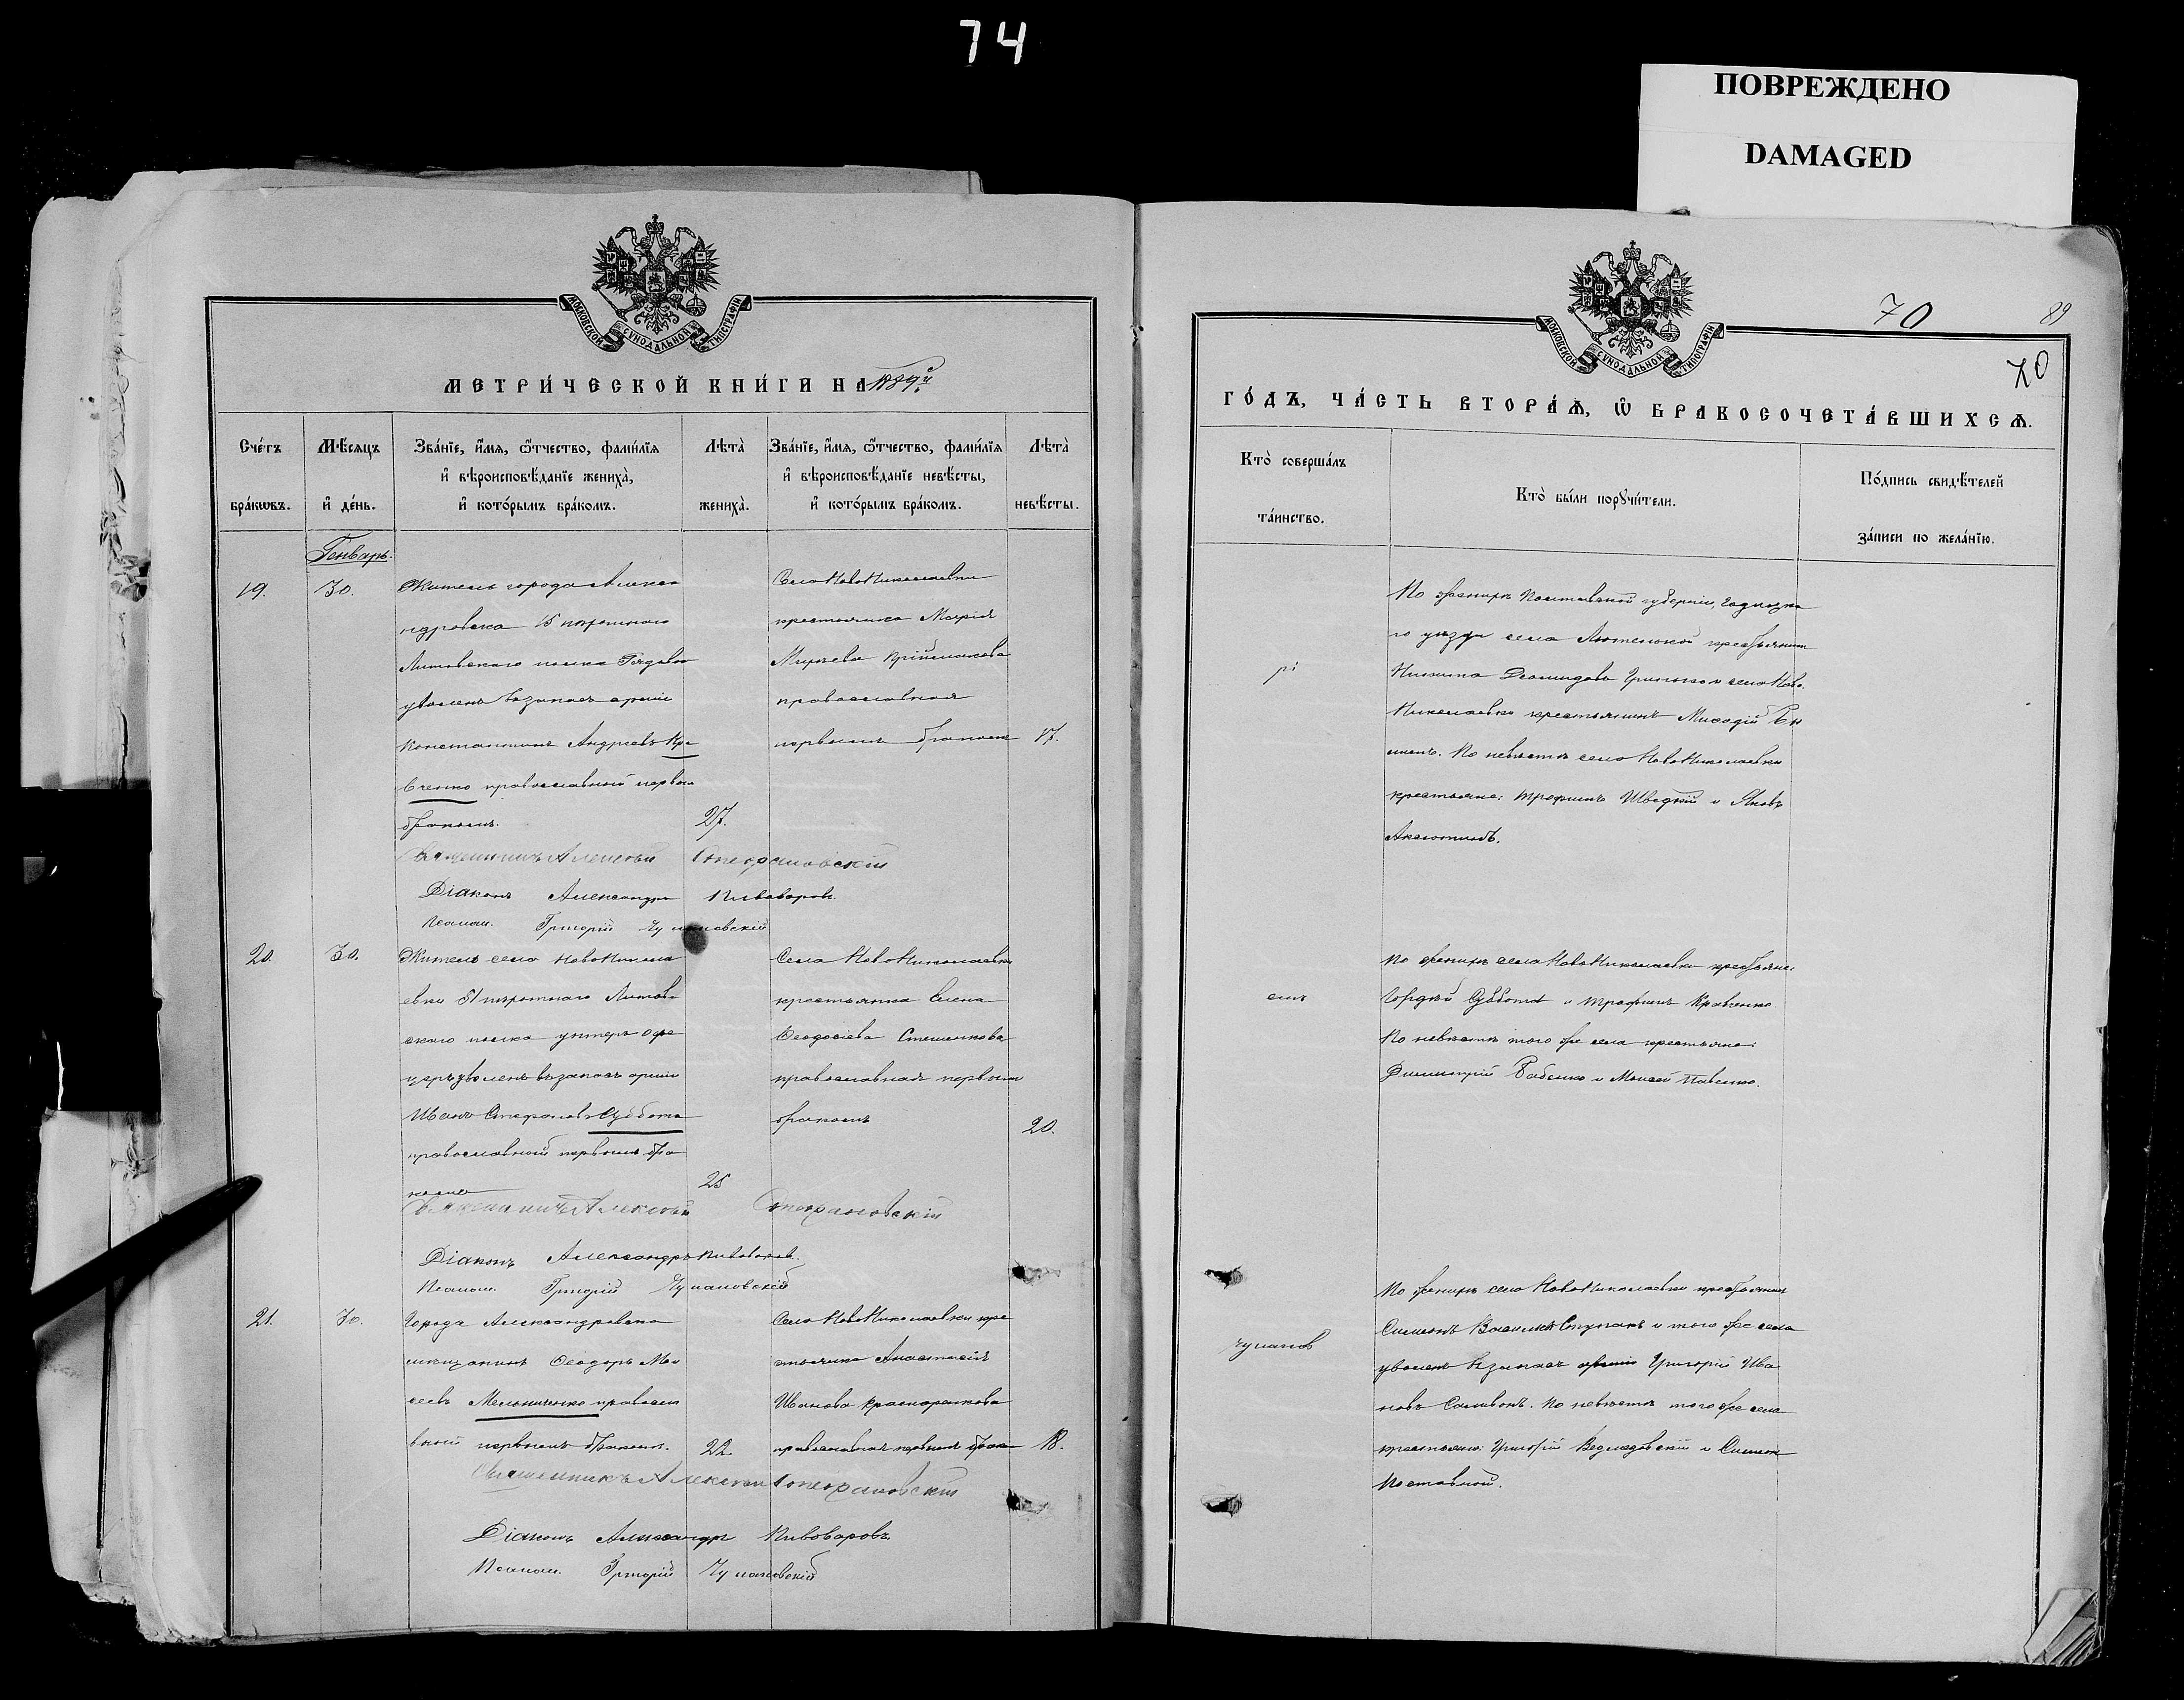 74
ПОВРЕЖДЕНО
DAMAGED
МОСКОВСКОЙ СУНОДАЛЬНОЙ ТИПОГРАФІИ
МЕТРИ́ЧЕСКОЙ КНИ́ГИ НА 1889й
Сче́тъ бра́кωвъ.
Мѣ́сяцъ и҆ де́нь.
Зва́нїе, и҆́мѧ, ѻ҆́тчество, фами́лїѧ
и҆ вѣроисповѣ́данїе жениха̀,
и҆ кото́рымъ бра́комъ.
Лѣта̀ жениха̀.
Зва́нїе, и҆́мѧ, ѻ҆́тчество, фами́лїѧ
и҆ вѣроисповѣ́данїе невѣ́сты,
и҆ кото́рымъ бра́комъ.
Лѣта̀ невѣ́сты.
Генварь.
19.
30.
Житель города Алекса
ндровска 15 пѣхотнаго
Литовскаго полка Рядовой
уволен. въ запасъ арміи
Константинъ Андреевъ Кра
вченко православный первымъ
бракомъ.
27.
Села НовоНиколаевки
крестьянка Марія
православная
первымъ бракомъ
17.
Священникъ Алексѣй Стефановскій
Діаконъ Александръ Пивоваровъ
Псалом. Григорій Чумановскій
20.
30.
Житель села НовоНикола
евки 51 пѣхотнаго Литов
скаго полка унтеръ офи
церъ уволенъ въ запасъ арміи
Иванъ Стефановъ Суббота
православный первымъ бра
комъ
25
Села НовоНиколаевки
крестьянка Елена
Ѳеодосіева Стешенкова
православная первымъ
бракомъ
20.
Священникъ Алексѣй Стефановскій
Діаконъ Александръ Пивоваровъ.
Псалом. Григорій Чумановскій
21.
30.
Города Александровска
мѣщанинъ Ѳеодоръ Мои
сеевъ Мельниченко правосла
вный первымъ бракомъ.
22.
Села НовоНиколаевки кре
стьянка Анастасія
Иванова
православная первымъ брак
18.
Священникъ Алексѣй Стефановскій
Діаконъ Александръ Пивоваровъ.
Псалом. Григорій Чумановскій
70
89
70
МОСКОВСКОЙ СУНОДАЛЬНОЙ ТИПОГРАФІИ
ГО́ДЪ, ЧА́СТЬ ВТОРА́Ѧ, Ѡ҆ БРАКОСОЧЕТА́ВШИХСѦ.
Кто̀ соверша́лъ та́инство.
Кто̀ бы́ли порꙋчи́тели.
По́дпись свидѣ́телей за́писи по жела́нїю.
По женихѣ Полтавской губерніи, Гадяцка
го уѣзда села Лютенской крестьянинъ
Никита Деомидовъ и села Ново
Николаевки крестьянинъ Меѳодій
По невѣстѣ села НовоНиколаевки
крестьяне: Трофимъ Шведкій и Яковъ
рі
По женихѣ села НовоНиколаевки крестьяне:
Гордѣй Суббота и Трофимъ Кравченко
По невѣстѣ того же села крестьяне:
Димитрій Бабенко и Моисей Павленко.
емъ
По женихѣ села НовоНиколаевки крестьянинъ
Симеонъ Василіевъ Ступакъ и того же села
уволен. въ запасъ арміи Григорій Ива
новъ Саливонъ. По невѣстѣ того же села
крестьяне: Григорій Ведмедовскій и Симеонъ
Поставной.
чуманов